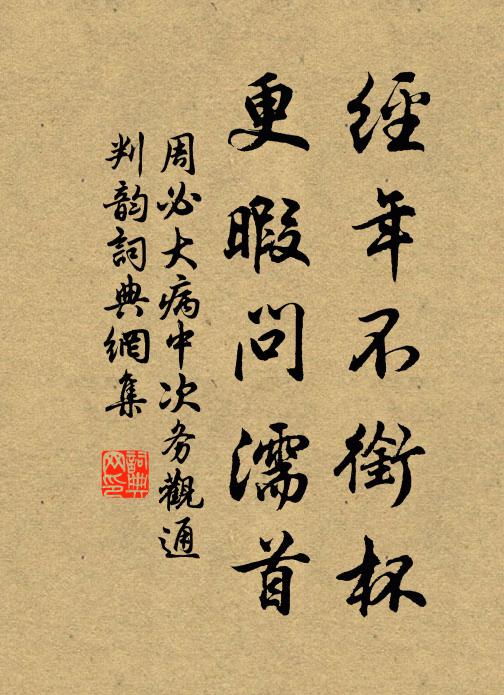 經年不銜杯
更暇問濡首
周必大病中次务觀通
判韵詞典網集
詞典
网印